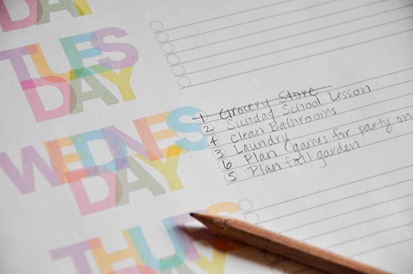 DAY
TUES
DAY
WEDNES
DAY
1 Grocery Store
2 Sunday School Lesson
4 Clean Bathrooms
3 Laundry
6 Plan games for party on
5 Plan fall garden
THURS
DAY